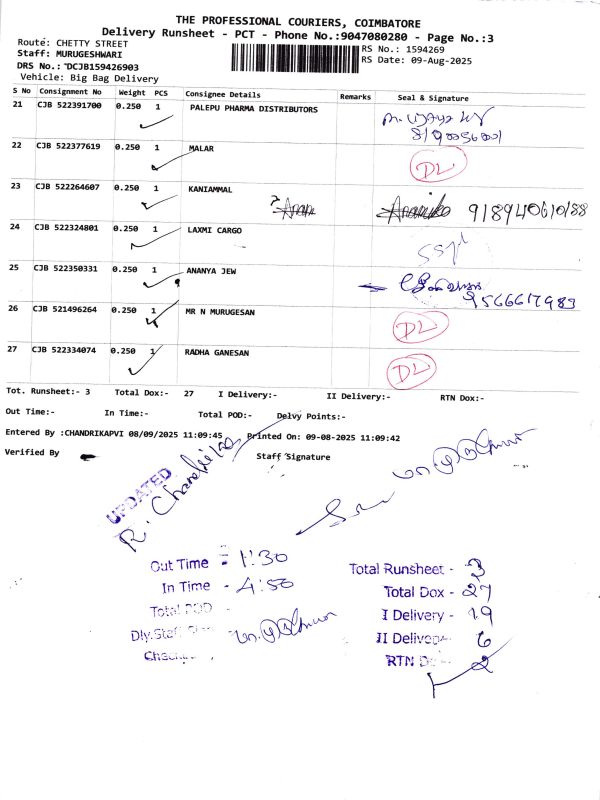 THE PROFESSIONAL COURIERS, COIMBATORE
Delivery Runsheet - PCT - Phone No.:9047080280 - Page No.:3
Route: CHETTY STREET
RS No.: 1594269
Staff: MURUGESHWARI
RS Date: 09-Aug-2025
DRS No.: DCJB159426903
Vehicle: Big Bag Delivery
S No Consignment No Weight PCS Consignee Details Remarks Seal & Signature
21 CJB 522391700 0.250 1 PALEPU PHARMA DISTRIBUTORS
22 CJB 522377619 0.250 1 MALAR DL
23 CJB 522264607 0.250 1 KANIAMMAL 918940610188
24 CJB 522324801 0.250 1 LAXMI CARGO
25 CJB 522350331 0.250 1 ANANYA JEW
9566617983
26 CJB 521496264 0.250 1 MR N MURUGESAN DL
27 CJB 522334074 0.250 1 RADHA GANESAN DL
Tot. Runsheet:- 3 Total Dox:- 27 I Delivery:- II Delivery:- RTN Dox:-
Out Time:- In Time:- Total POD:- Delvy Points:-
Entered By :CHANDRIKAPVI 08/09/2025 11:09:45 Printed On: 09-08-2025 11:09:42
Verified By Staff Signature
UPDATED
R. Chandrika
Out Time - 1:30
In Time - 4:50
Total POD -
Dly.Staff
Total Runsheet - 3
Total Dox - 27
I Delivery - 19
II Delivery - 6
RTN Dox - 2